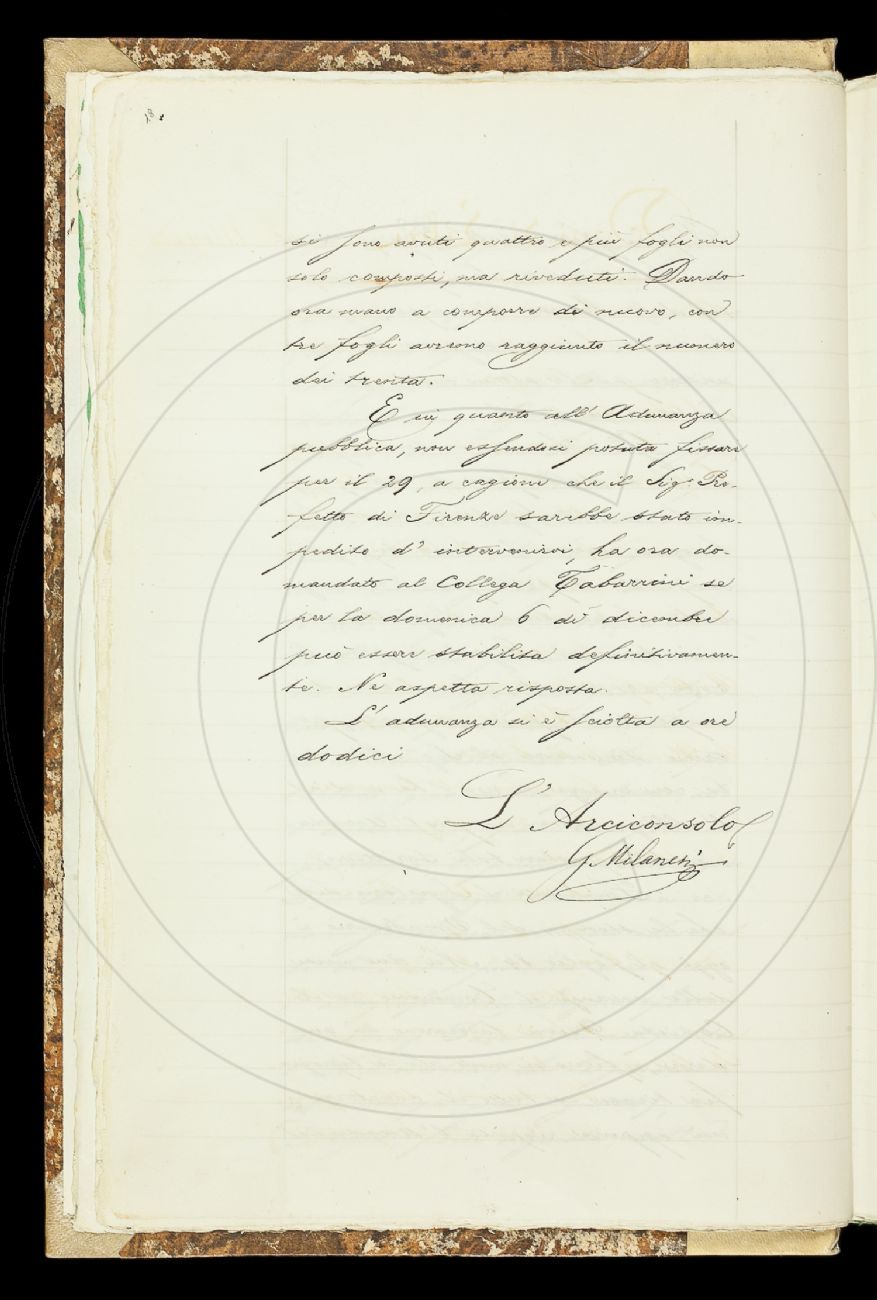 18.
si sono avuti quattro e più fogli non
solo composti, ma riveduti. Dando
ora mano a comporre di nuovo, con
tre fogli avremo raggiunto il numero
dei trenta.
E in quanto all' Adunanza
pubblica, non essendosi potuta fissare
per il 29, a cagione che il Sig. Pre-
fetto di Firenze sarebbe stato im-
pedito d' intervenirvi, ha ora do-
mandato al Collega Tabarrini se
per la domenica 6 di dicembre
può essere stabilita definitivamen-
te. Ne aspetta risposta.
L' adunanza si è sciolta a ore
dodici
L' Arciconsolo
G. Milanesi